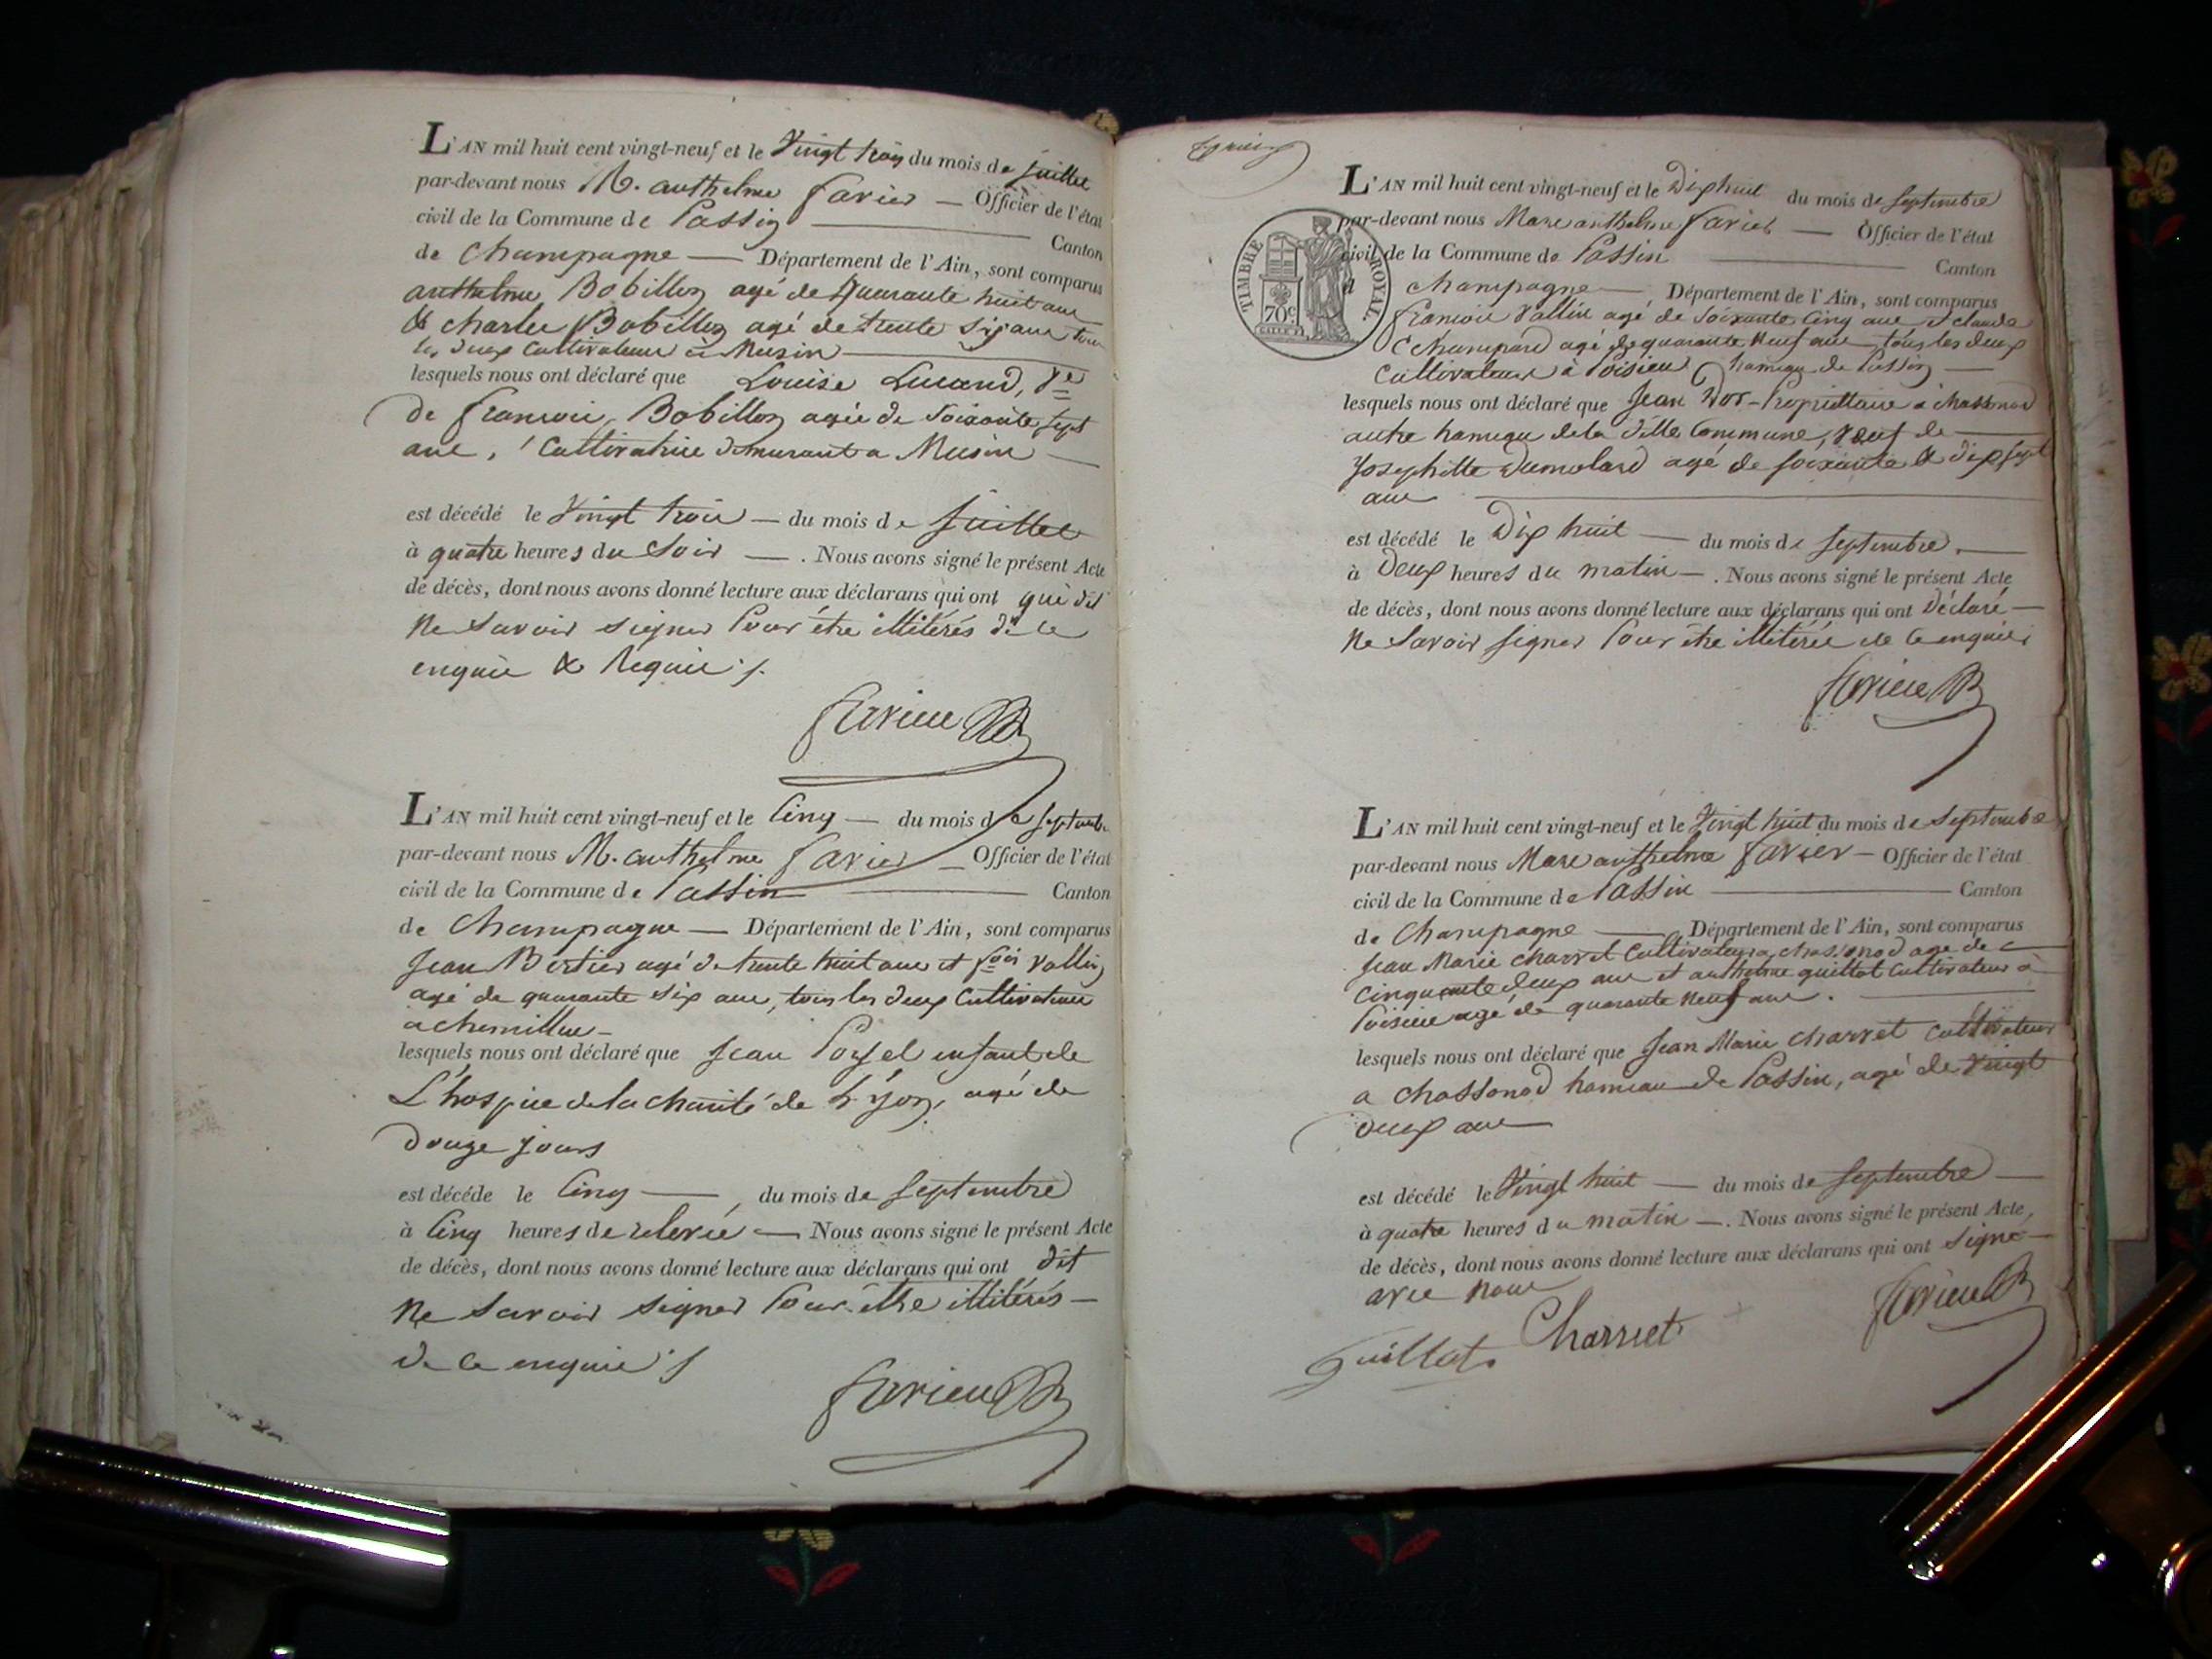 L'AN mil huit cent vingt-neuf et le Vingt trois du mois de juillet
par-devant nous M. anthelme favier — Officier de l'état
civil de la Commune de Passin — Canton
de Champagne — Département de l'Ain, sont comparus
anthelme Bobillon agé de Quarante huit ans
& charles Bobillon agé de trente six ans tous
les deux Cultivateurs à Musin —
lesquels nous ont déclaré que Louise Lucand, Ve
de francois Bobillon agée de Soixante sept
ans, Cultivatrice demurant a Musin —
est décédé le Vingt trois — du mois de juillet
à quatre heures du Soir — . Nous avons signé le présent Acte
de décès, dont nous avons donné lecture aux déclarans qui ont qui dit
Ne Savoir signer Pour être illitérés de ce
enquis & Requis
favier
L'AN mil huit cent vingt-neuf et le Cinq — du mois de septembre
par-devant nous M. anthelme favier — Officier de l'état
civil de la Commune de Passin — Canton
de Champagne — Département de l'Ain, sont comparus
Jean Bertier agé de trente huit ans et fois Vallin
agé de quarante six ans, tous les deux Cultivateurs
a chemillieu —
lesquels nous ont déclaré que Jean enfant de
L'hospice de la charité de Lyon, agé de
douze jours
est décédé le Cinq — , du mois de septembre
à Cinq heures de relevée — Nous avons signé le présent Acte
de décès, dont nous avons donné lecture aux déclarans qui ont dit
Ne Savoir signer Pour être illitérés —
de ce enquis
favier
TIMBRE ROYAL
70c
L'AN mil huit cent vingt-neuf et le Dix huit du mois de septembre
par-devant nous Marc anthelme favier — Officier de l'état
civil de la Commune de Passin — Canton
d Champagne — Département de l'Ain, sont comparus
francois Vallin agé de Soixante Cinq ans et claude
Champard agé de quarante Neuf ans tous les deux
Cultivateurs à Poisieu hameau de Passin —
lesquels nous ont déclaré que Jean Propriettaire a chassonod
autre hameau de la ditte Commune, veuf de —
Josephitte Dumolard agé de soixante & dix sept
ans —
est décédé le Dix huit — du mois de septembre —
à Deux heures du matin — . Nous avons signé le présent Acte
de décès, dont nous avons donné lecture aux déclarans qui ont Déclaré —
Ne Savoir signer Pour être illitérés de ce enquis
favier
L'AN mil huit cent vingt-neuf et le Vingt huit du mois de septembre
par-devant nous Marc anthelme favier — Officier de l'état
civil de la Commune de Passin — Canton
de Champagne — Département de l'Ain, sont comparus
Jean Marie charvet Cultivateur a chassonod agé de
Cinquante deux ans et anthelme quillot Cultivateur à
Poisieu agé de quarante neuf ans. —
lesquels nous ont déclaré que Jean Marie charvet Cultivateur
a chassonod hameau de Passin, agé de Vingt
deux ans —
est décédé le Vingt huit — du mois de septembre —
à quatre heures du matin — . Nous avons signé le présent Acte,
de décès, dont nous avons donné lecture aux déclarans qui ont signé —
avec Nous
favier
quillot Charvet